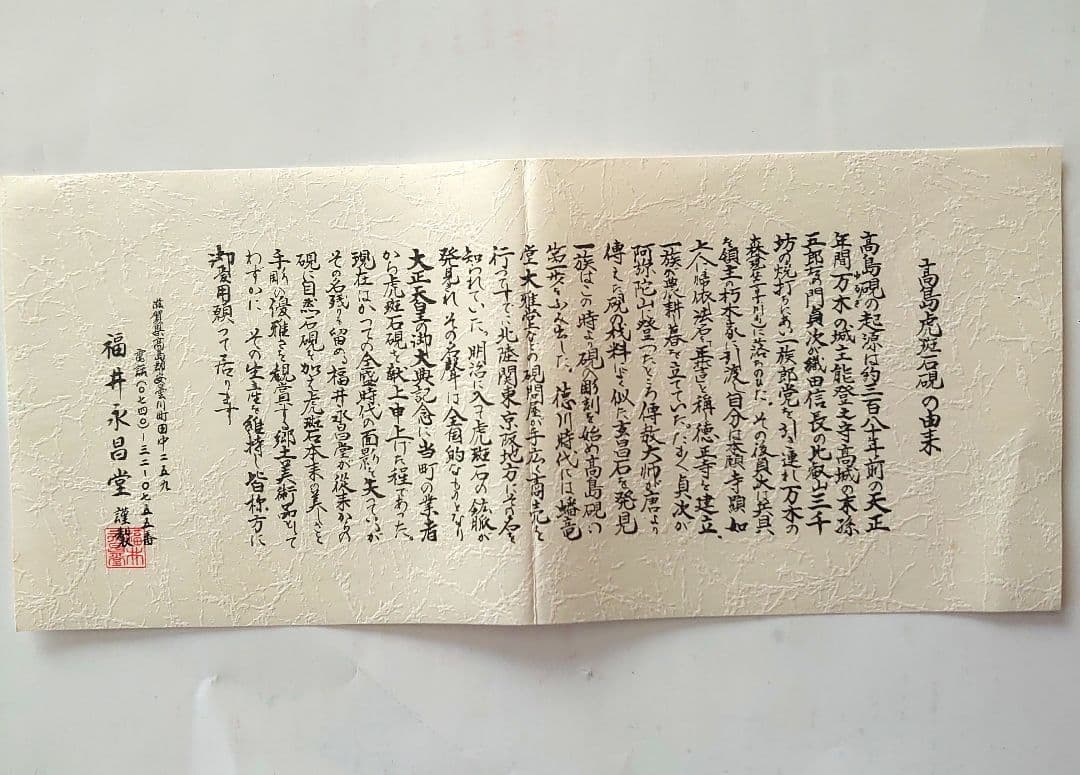 高島虎斑石硯の由来
高島硯の起源は約三百八十年前の天正
年間万木の城主能登之守高城の末孫
五郎左衛門貞次が織田信長の比叡山三千
坊の焼打ちにあい一族郎党を引き連れ万木の
森
を領主の朽木家に引渡し自分は本願寺顕如
上人に帰依法名を 稱し徳正寺を建立、
一族の
阿弥陀山に登ったところ傳教大師が唐より
傳えた硯の材料によく似た玄昌石を発見
一族はこの時より硯の彫刻を始め高島硯の
第一歩をふみ出した。徳川時代には蟠竜
堂大雅堂などの硯問屋が手広く商売を
行ってすでに北陸関東京阪地方にその名を
知られていた。明治に入って虎斑石の鉱脈が
発見されその名声は全国的なものとなり
大正天皇の御大典記念に当町の業者
から虎斑石硯を献上申上げた程であった。
現在はかつての全盛時代の面影を失っているが
その名残りを留め、福井永昌堂が従来からの
硯に自然石硯を加えて虎斑石本来の美しさと
手彫の優雅さを観賞する郷土美術品として
わずかに その生産を維持し皆様方に
御愛用願って居ります
滋賀県高島郡安曇川町田中一二五九
電話(〇七四〇)ー三二ー〇七五五番
福井永昌堂 謹製